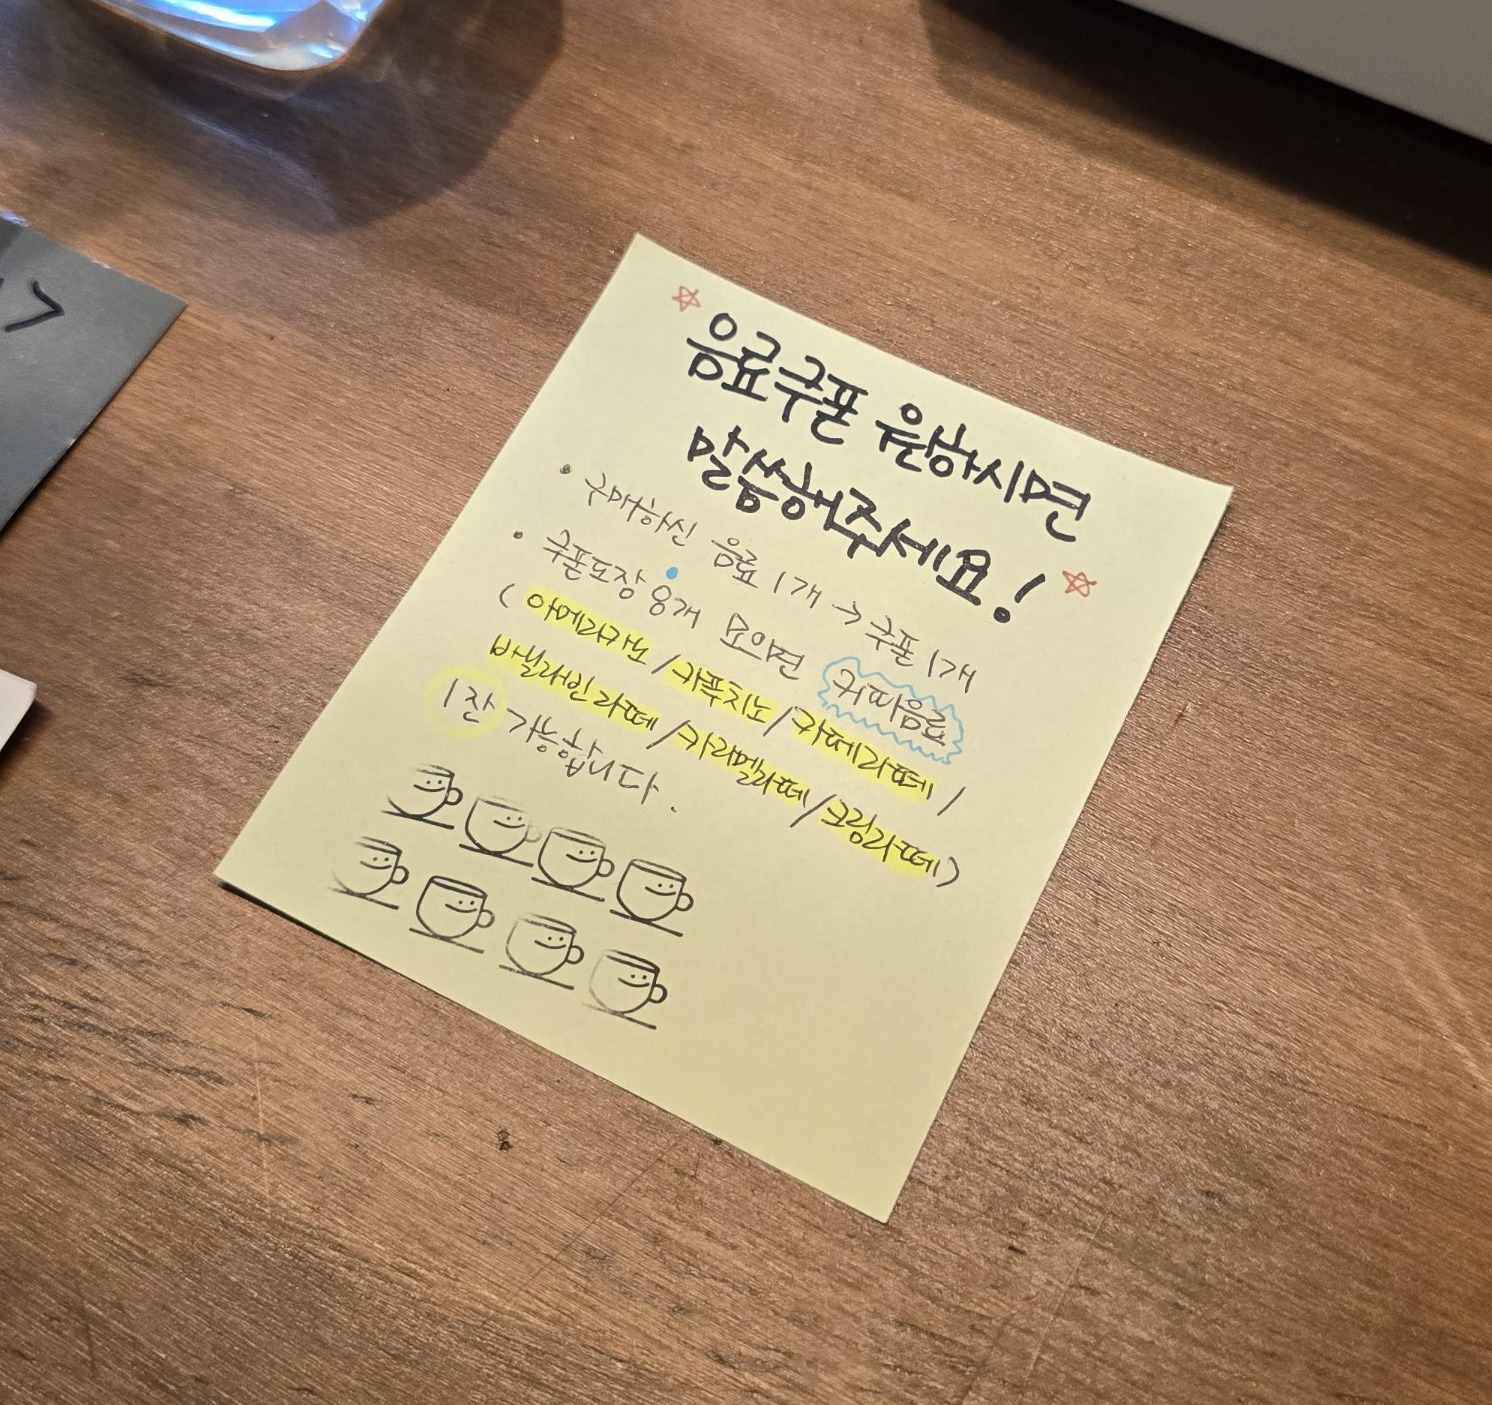 음료쿠폰 원하시면
말씀해주세요!
• 구매하신 음료 1개 → 쿠폰 1개
• 쿠폰도장 8개 모으면 커피음료
(아메리카노/카푸치노/카페라떼/
바닐라빈라떼/카라멜라떼/크림라떼)
1잔 가능합니다.